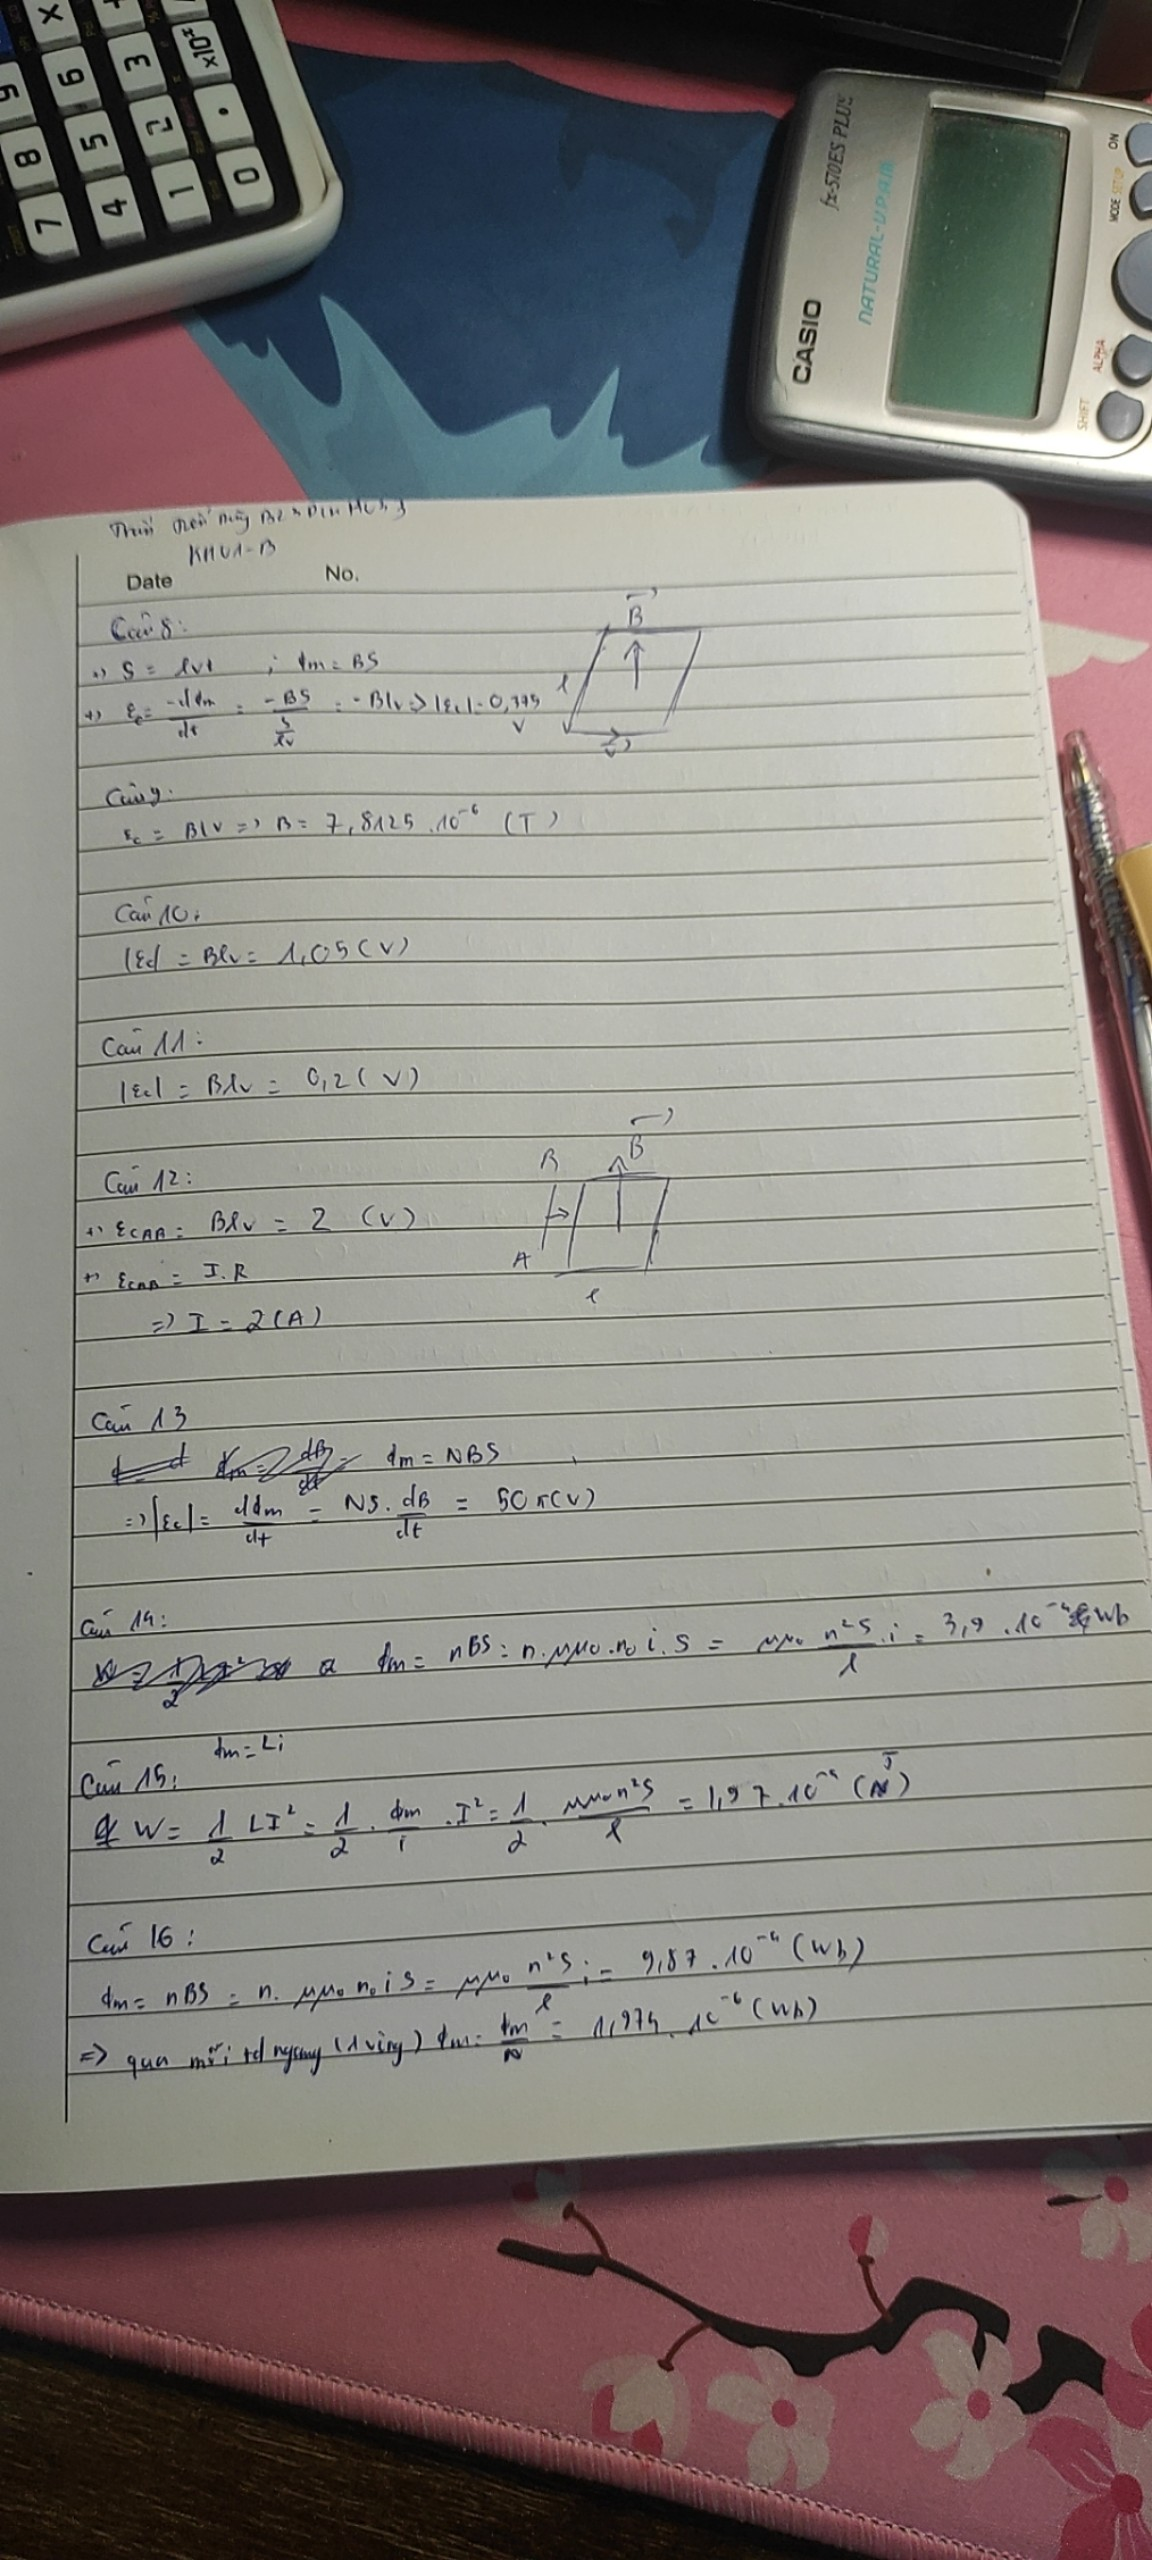 7 8 9
4 5 6 ×
1 2 3 +
0 • ×10ˣ
CASIO fx-570ES PLUS
NATURAL-V.P.A.M.
SHIFT ALPHA MODE SETUP ON
KHV1-B
Date No.
Câu 8:
+) S = lvt ; ɸm = BS
+) Ɛc = -dɸm/dt = -BS/(S/lv) = -Blv => |Ɛc| = 0,375 V
B⃗
l
v⃗
Câu 9:
Ɛc = Blv => B = 7,8125 . 10⁻⁶ (T)
Câu 10:
|Ɛc| = Blv = 1,05 (V)
Câu 11:
|Ɛc| = Blv = 0,2 (V)
Câu 12:
+) ƐcAB = Blv = 2 (V)
+) ƐcAB = I.R
=> I = 2 (A)
B B⃗
A
l
Câu 13
ɸm = NBS
=> |Ɛc| = dɸm/dt = NS . dB/dt = 50π (V)
Câu 14:
ɸm = nBS = n.μμ₀.n₀ i.S = μμ₀ n²S/l .i = 3,9 . 10⁻⁴ Wb
ɸm = Li
Câu 15:
W = 1/2 LI² = 1/2 . ɸm/i . I² = 1/2 . μμ₀n²S/l = 1,97 . 10⁻⁴ (J)
Câu 16:
ɸm = nBS = n. μμ₀ n₀ i S = μμ₀ n²S/l i = 9,87 . 10⁻⁴ (Wb)
=> qua mỗi td ngang (1 vòng) ɸm = ɸm/N = 1,974 . 10⁻⁶ (Wb)